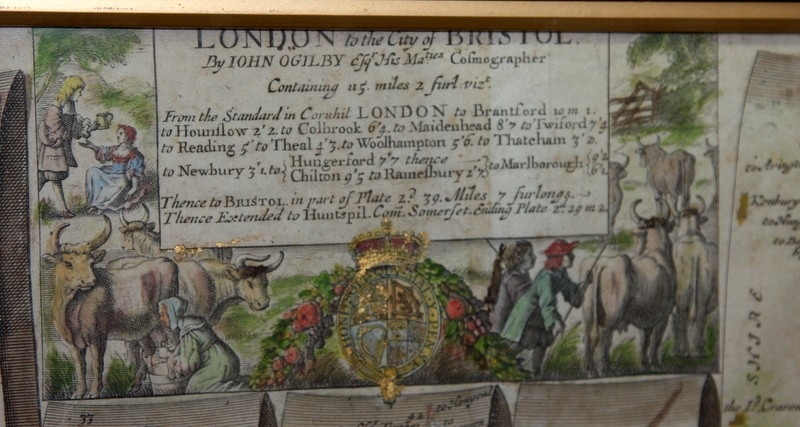 LONDON to the City of BRISTOL.
By IOHN OGILBY Esqr. His Maties Cosmographer
Containing 115 miles 2 furl: vizt.
From the Standard in Cornhil LONDON to Brantford 10 m 1.
to Hounslow 2'2. to Colbrook 6'4. to Maidenhead 8'7 to Twiford 7'4
to Reading 5' to Theal 4'3. to Woolhampton 5'6. to Thatcham 3'2.
to Newbury 3'1. to { Hungerford 7'7 thence
Chilton 9'5 to Ramesbury 2'7 } to Marlborough {
Thence to BRISTOL. in part of Plate 2.d 39. Miles 7 furlongs.
Thence Extended to Huntspil. Com. Somerset. Ending Plate 2d. 29 m 2.
33
SHIRE